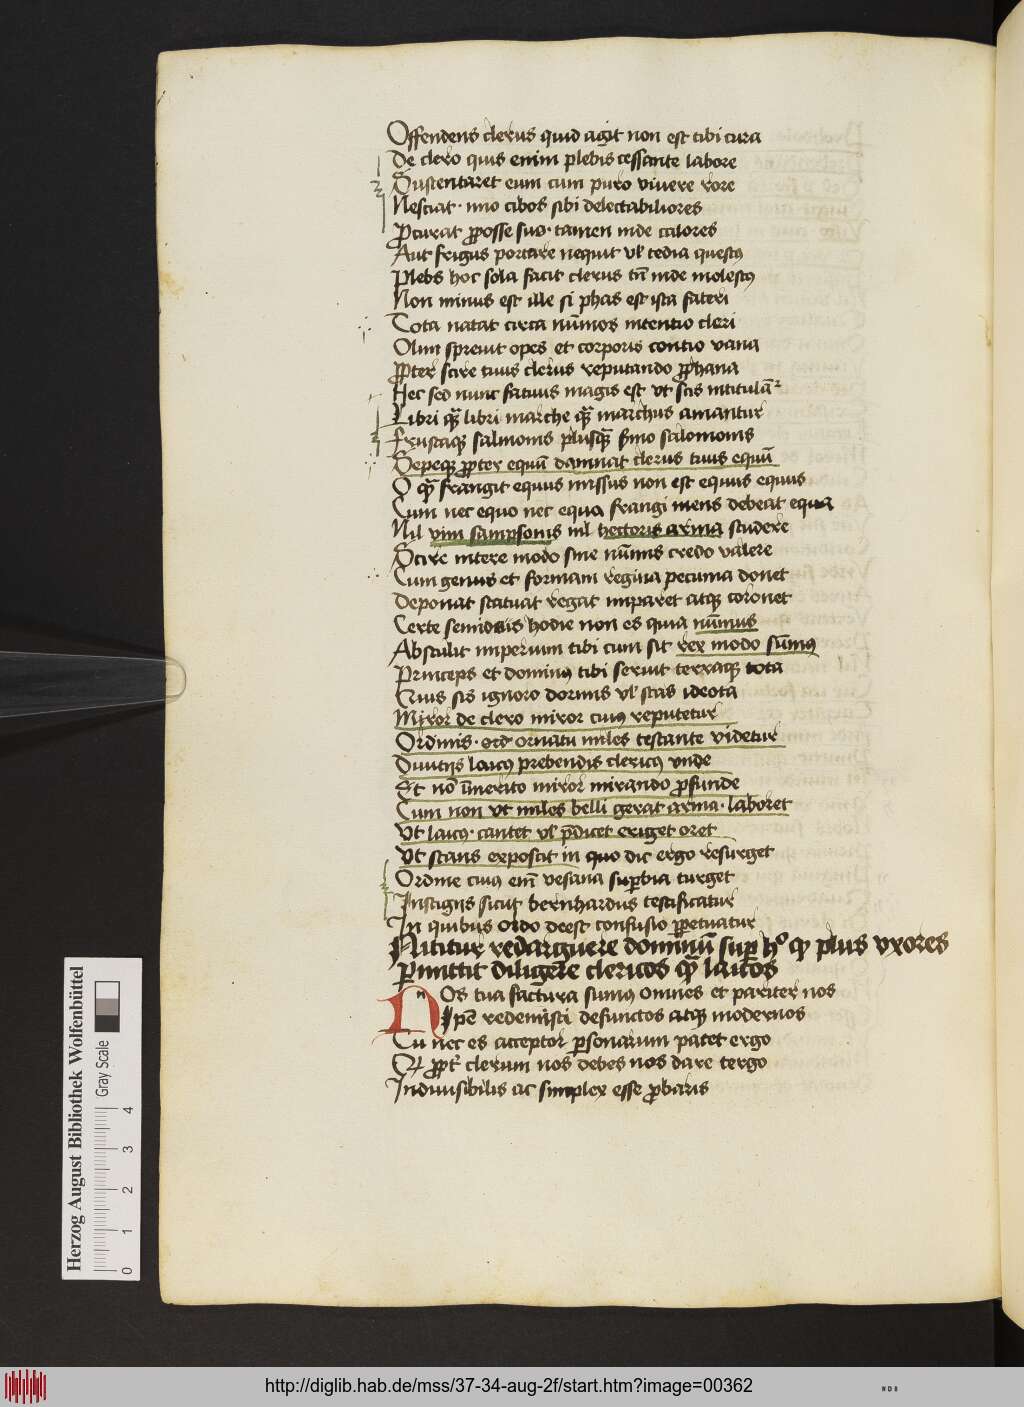 Offendens clerus quid agit non est tibi cura
De clero quis enim plebis cessante labore
Sustentaret eum cum puro vivere rore
Nesciat · imo cibos sibi delectabiliores
ꝓcurat ꝓposse suo · tamen inde calores
Aut frigus portare nequit vl̕ tedia questꝰ
Plebs hoc sola facit clerus tn̄ inde molestꝰ
Non minus est ille si phas est ista fateri
Tota natat circa nūmos intentio cleri
Olim sprevit opes et corporis contio vana
ꝓpter scire tuus clerus reputando ꝓphana
Hec sed nunc fatuus magis est vt scis intitulat̄
Libri qꝫ libri marche qꝫ marchus amantur
Frustaqꝫ salmonis plusqꝫ s̄mo salomonis
Sepeqꝫ ꝓpter equū damnat clerus tuus equū
O qꝫ frangit equus missus non est equus equus
Cum nec equo nec equa frangi mens debeat equa
Nil vim sampsonis nil hectoris arma studere
Scire intere modo sine nūmis credo valere
Cum genus et formam regina pecunia donet
Deponat statuat regat imparet atqꝫ coronet
Certe semideus hodie non es quia nūmus
Abstulit imperium tibi cum sit rex modo sūmꝰ
Princeps et dominꝰ tibi servit terraqꝫ tota
Cuius sis ignoro dormis vl̕ stas ideota
Miror de clero miror cuiꝰ reputetur
Ordinis · ord ornatu miles testante videtur
Divitijs laicꝰ prebendis clericꝰ vnde
Et nō īmerito miror mirando ꝓfunde
Cum non vt miles belli gerat arma · laboret
Vt laicꝰ · cantet vl̕ p̄dicet exiget oret
Vt stans exposcit in quo dic ergo resurget
Ordine cuiꝰ em̄ vesana suꝑbia turget
Instigijs sicut bernhardus testificatur
In quibus ordo deest confusio ꝑpetuatur
Nititur redarguere dominū suꝑ hº qꝫ plus vxores
ꝑmittit diligere clericos qꝫ laicos
Nos tua factura sumꝰ omnes et pariter nos
Ipē redemisti defunctos atqꝫ modernos
Tu nec es acceptor ꝑsonarum patet ergo
Qꝫ ꝓpt̕ clerum nos debes nos dare tergo
Indivisibilis ac simplex esse ꝓbaris
Herzog August Bibliothek Wolfenbüttel
Gray Scale
0 1 2 3 4
http://diglib.hab.de/mss/37-34-aug-2f/start.htm?image=00362